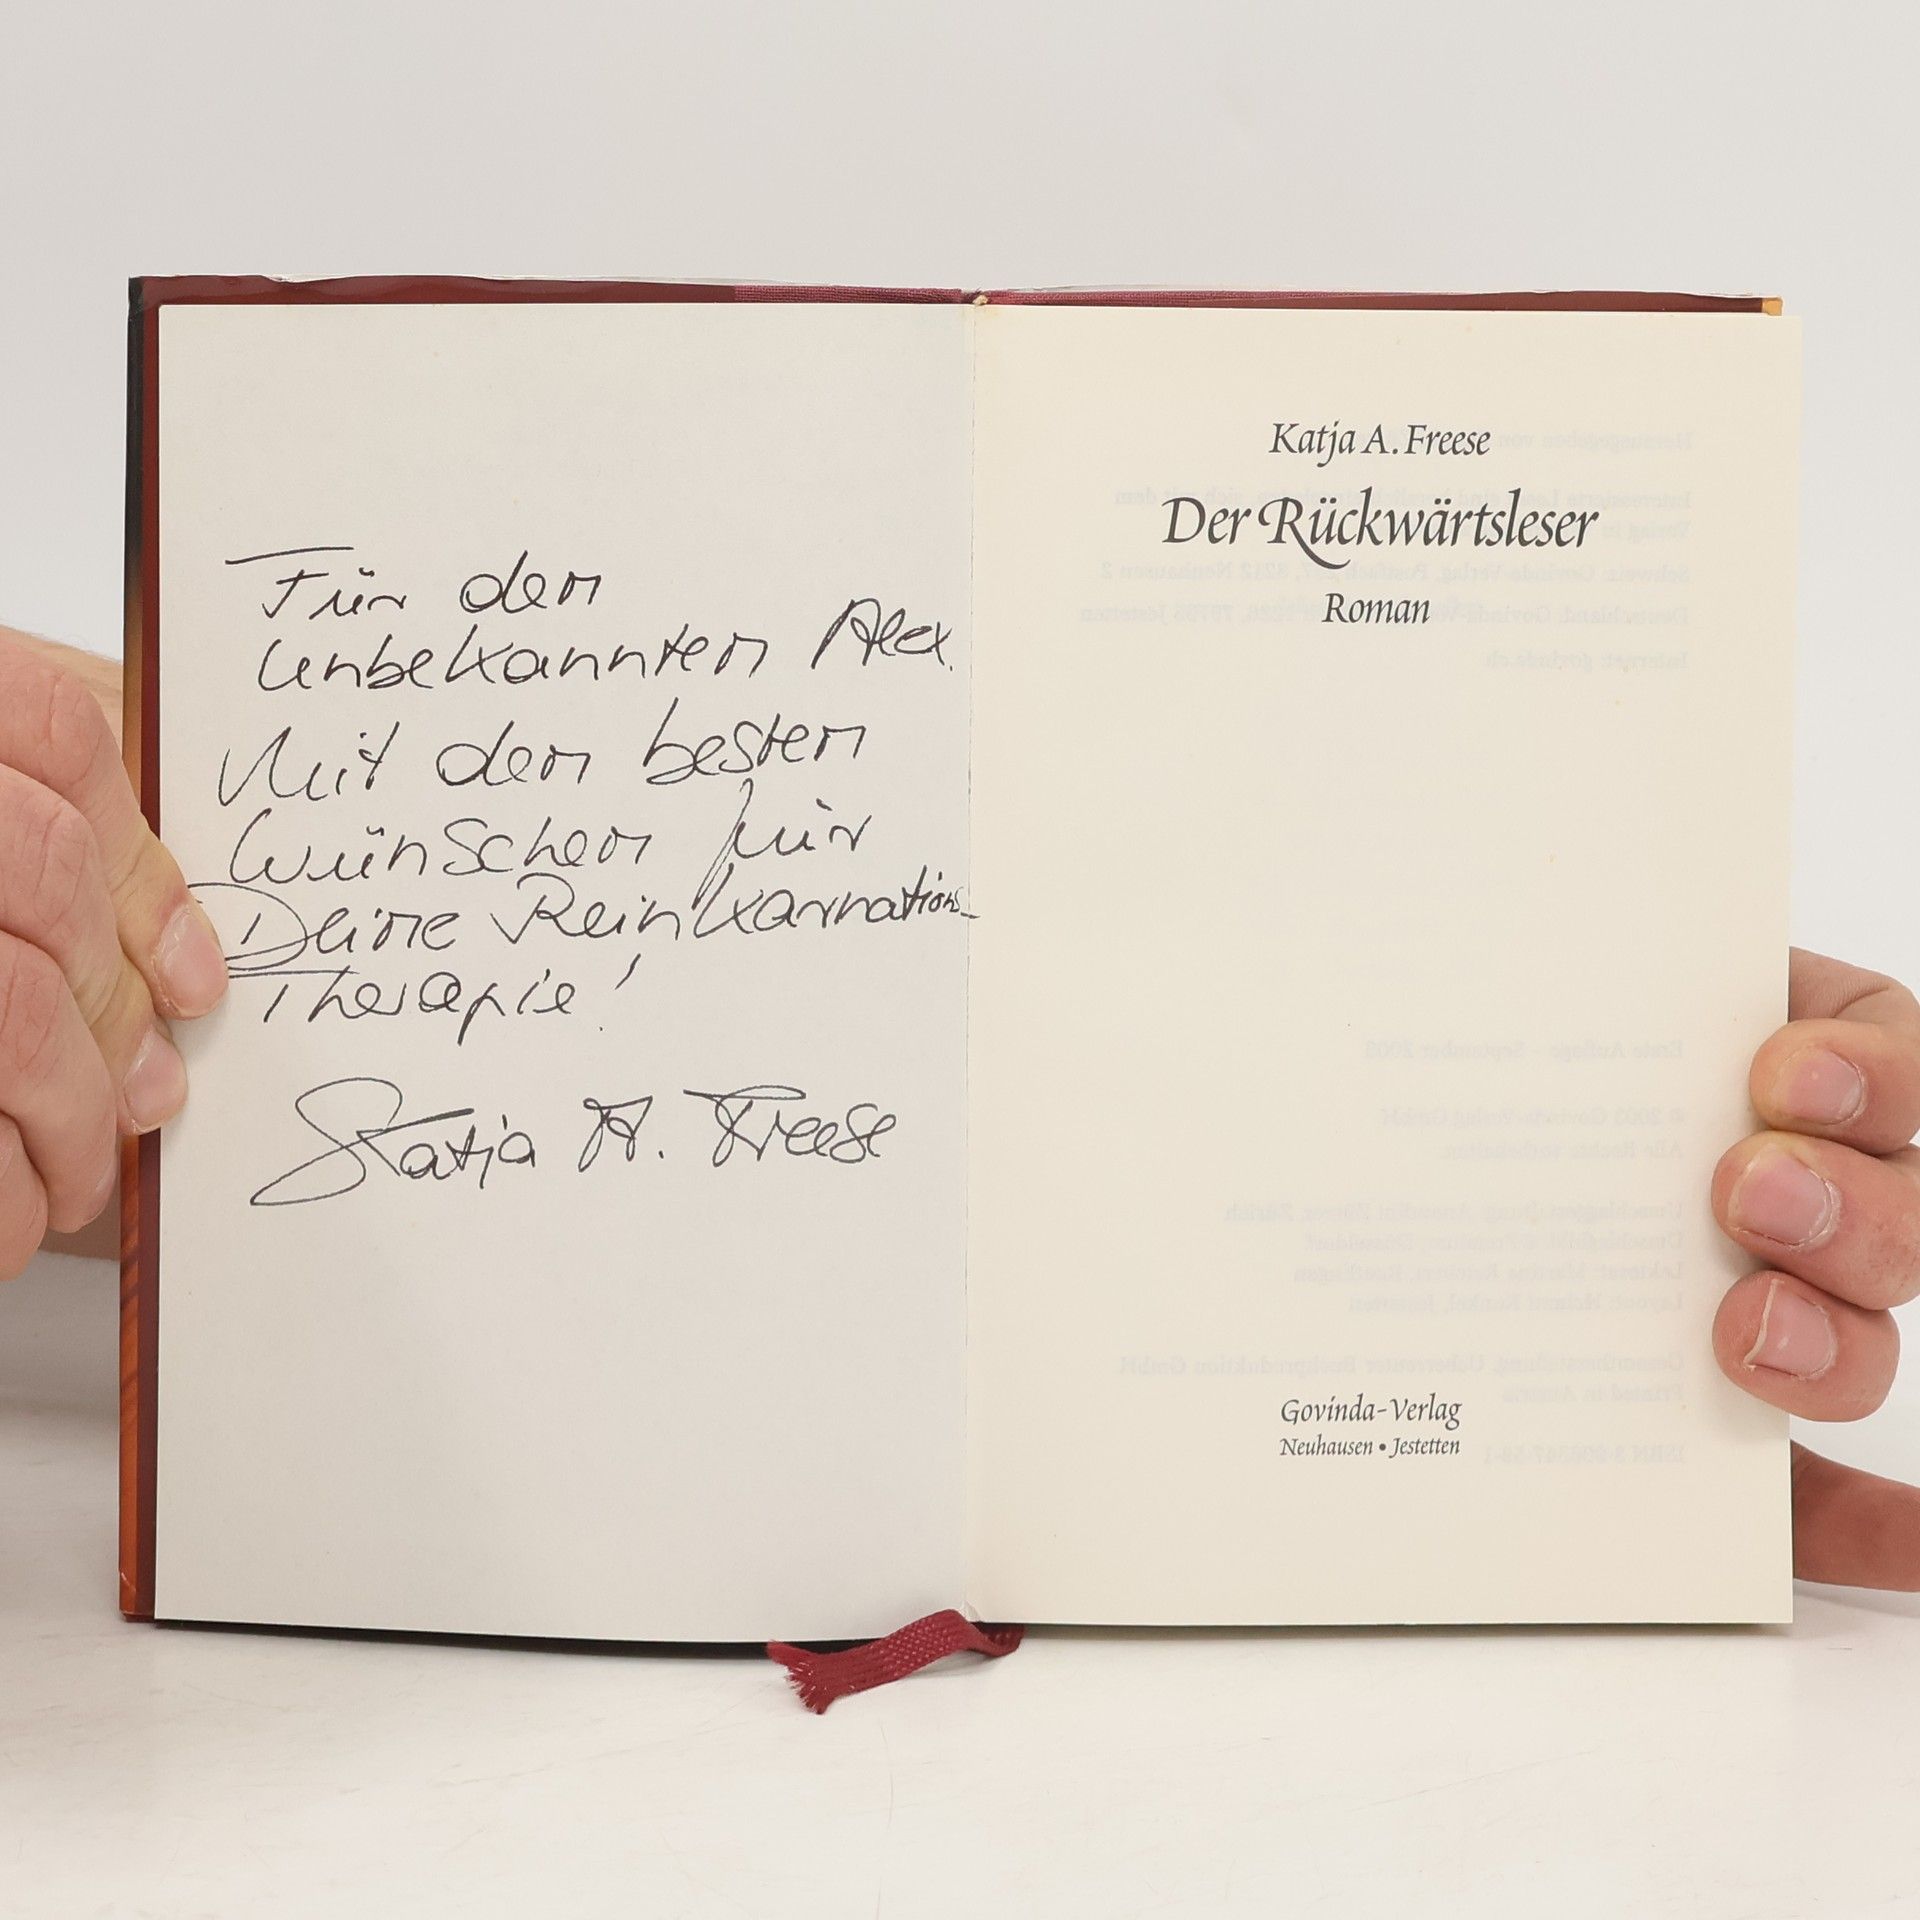 Für den
Unbekannten Alex.
Mit den besten
Wünschen für
Deine Reinkarnations-
Therapie!
Katja A. Freese
Katja A. Freese
Der Rückwärtsleser
Roman
Govinda-Verlag
Neuhausen • Jestetten